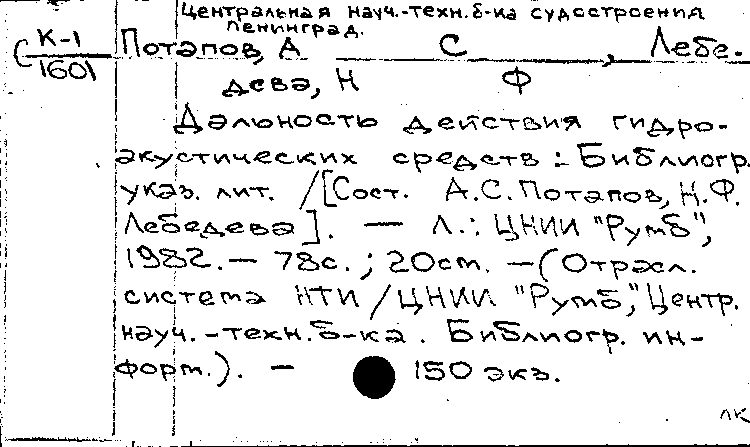 Центральная науч.-техн. б-ка судостроения
Ленинград.
К-1 Потапов, А С , Лебе-
С 1601
дева, Н Ф
Дальность действия гидро-
акустических средств : Библиогр.
указ. лит. / [Сост. А.С. Потапов, Н.Ф.
Лебедева]. — Л. : ЦНИИ "Румб",
1982. — 78с. ; 20cm. — (Отрасл.
система НТИ / ЦНИИ "Румб", Центр.
науч. -техн. б-ка . Библиогр. ин-
форт.). — 150 экз.
ЛК